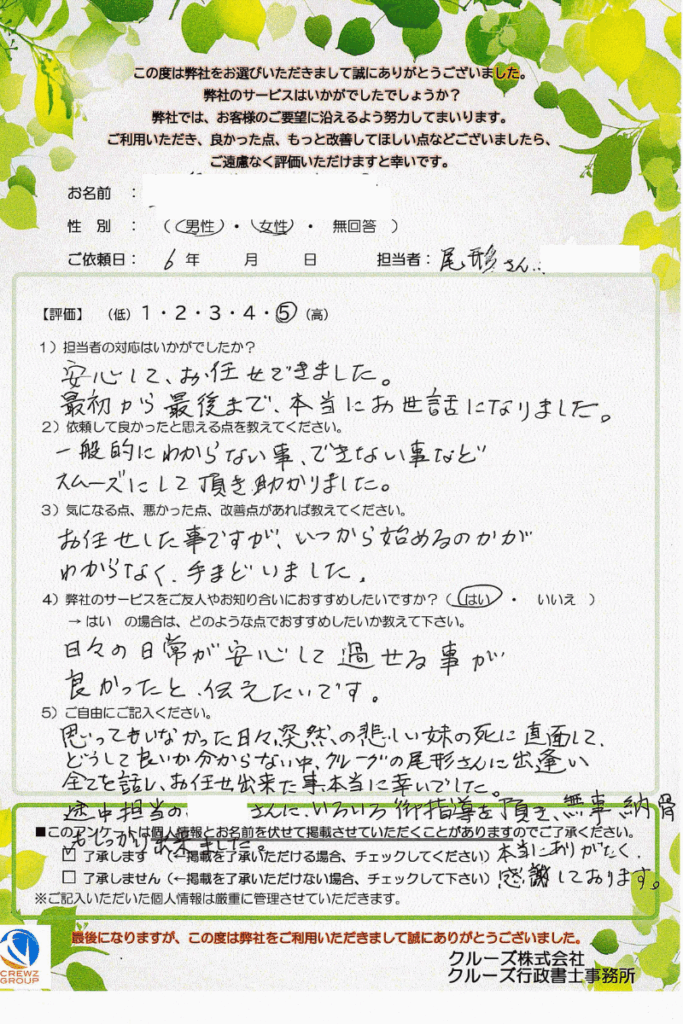 この度は弊社をお選びいただきまして誠にありがとうございました。
弊社のサービスはいかがでしたでしょうか？
弊社では、お客様のご要望に沿えるよう努力してまいります。
ご利用いただき、良かった点、もっと改善してほしい点などございましたら、
ご遠慮なく評価いただけますと幸いです。
お名前　：
性　別　：　（ 男性 ・ 女性 ・ 無回答 ）
ご依頼日：　6 年　　月　　日　　担当者：尾形さん.
【評価】　（低）１・２・３・４・５（高）
１）担当者の対応はいかがでしたか？
安心して、お任せできました。
最初から最後まで、本当にお世話になりました。
２）依頼して良かったと思える点を教えてください。
一般的にわからない事、できない事など
スムーズにして頂き助かりました。
３）気になる点、悪かった点、改善点があれば教えてください。
お任せした事ですが、いつから始めるのかが
わからなく、手まどいました。
４）弊社のサービスをご友人やお知り合いにおすすめしたいですか？（ はい ・ いいえ ）
→ はい　の場合は、どのような点でおすすめしたいか教えて下さい。
日々の日常が安心して過せる事が
良かったと、伝えたいです。
５）ご自由にご記入ください。
思ってもいなかった日々、突然、の悲しい妹の死に直面して、
どうして良いか分からない中、クルーヅの尾形さんに出逢い
全てを話し、お任せ出来た事、本当に幸いでした。
途中担当の　　　さんに、いろいろ御指導を頂き、無事納骨
もしっかり出来ました。
■このアンケートは個人情報とお名前を伏せて掲載させていただくことがありますのでご了承ください。
☑ 了承します　（←掲載を了承いただける場合、チェックしてください）
本当にありがたく、
□ 了承しません（←掲載を了承いただけない場合、チェックして下さい）
感謝しております。
※ご記入いただいた個人情報は厳重に管理させていただきます。
最後になりますが、この度は弊社をご利用いただきまして誠にありがとうございました。
クルーズ株式会社
クルーズ行政書士事務所
CREWZ
GROUP